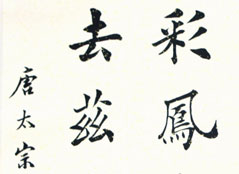 彩鳳
去茲
唐太宗